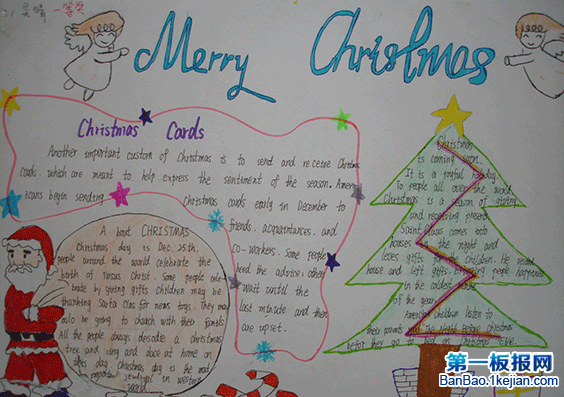 吴晴 一等奖
Merry Christmas
Christmas Cards
Another important custom of Christmas is to send and receive Christmas
cards, which are meant to help express the sentiment of the season. Amer
icans begin sending Christmas cards early in December to
friends, acquaintances, and
co-workers. Some people
heed the advice; others
wait until the
last minute and then
are upset.
A bout CHRISTMAS
Christmas day is Dec. 25th.
people around the world celebrate the
birth of Jesus Christ. Some people cele
brate by giving gifts Children may be
thanking Santa Clus for news toys. They may
also be going to church with their families
All the people always decodte a christmas
tree and sing and dace at home on
this day Christmas day is the most
important festival in western
world
Christmas
is coming soon.
It is a joyful holiday
To people all over the world
Christmas is a season of giving
and receiving present
Saint claus comes into
houses in the night and
leces gifts for the children. He
house and left gifts people happiness
in the coldest
of the year.
American children listen to
their parents the Night Before Christmas
before they go to bed on Christmas Eve.
第一板报网
BanBao.1kejian.com